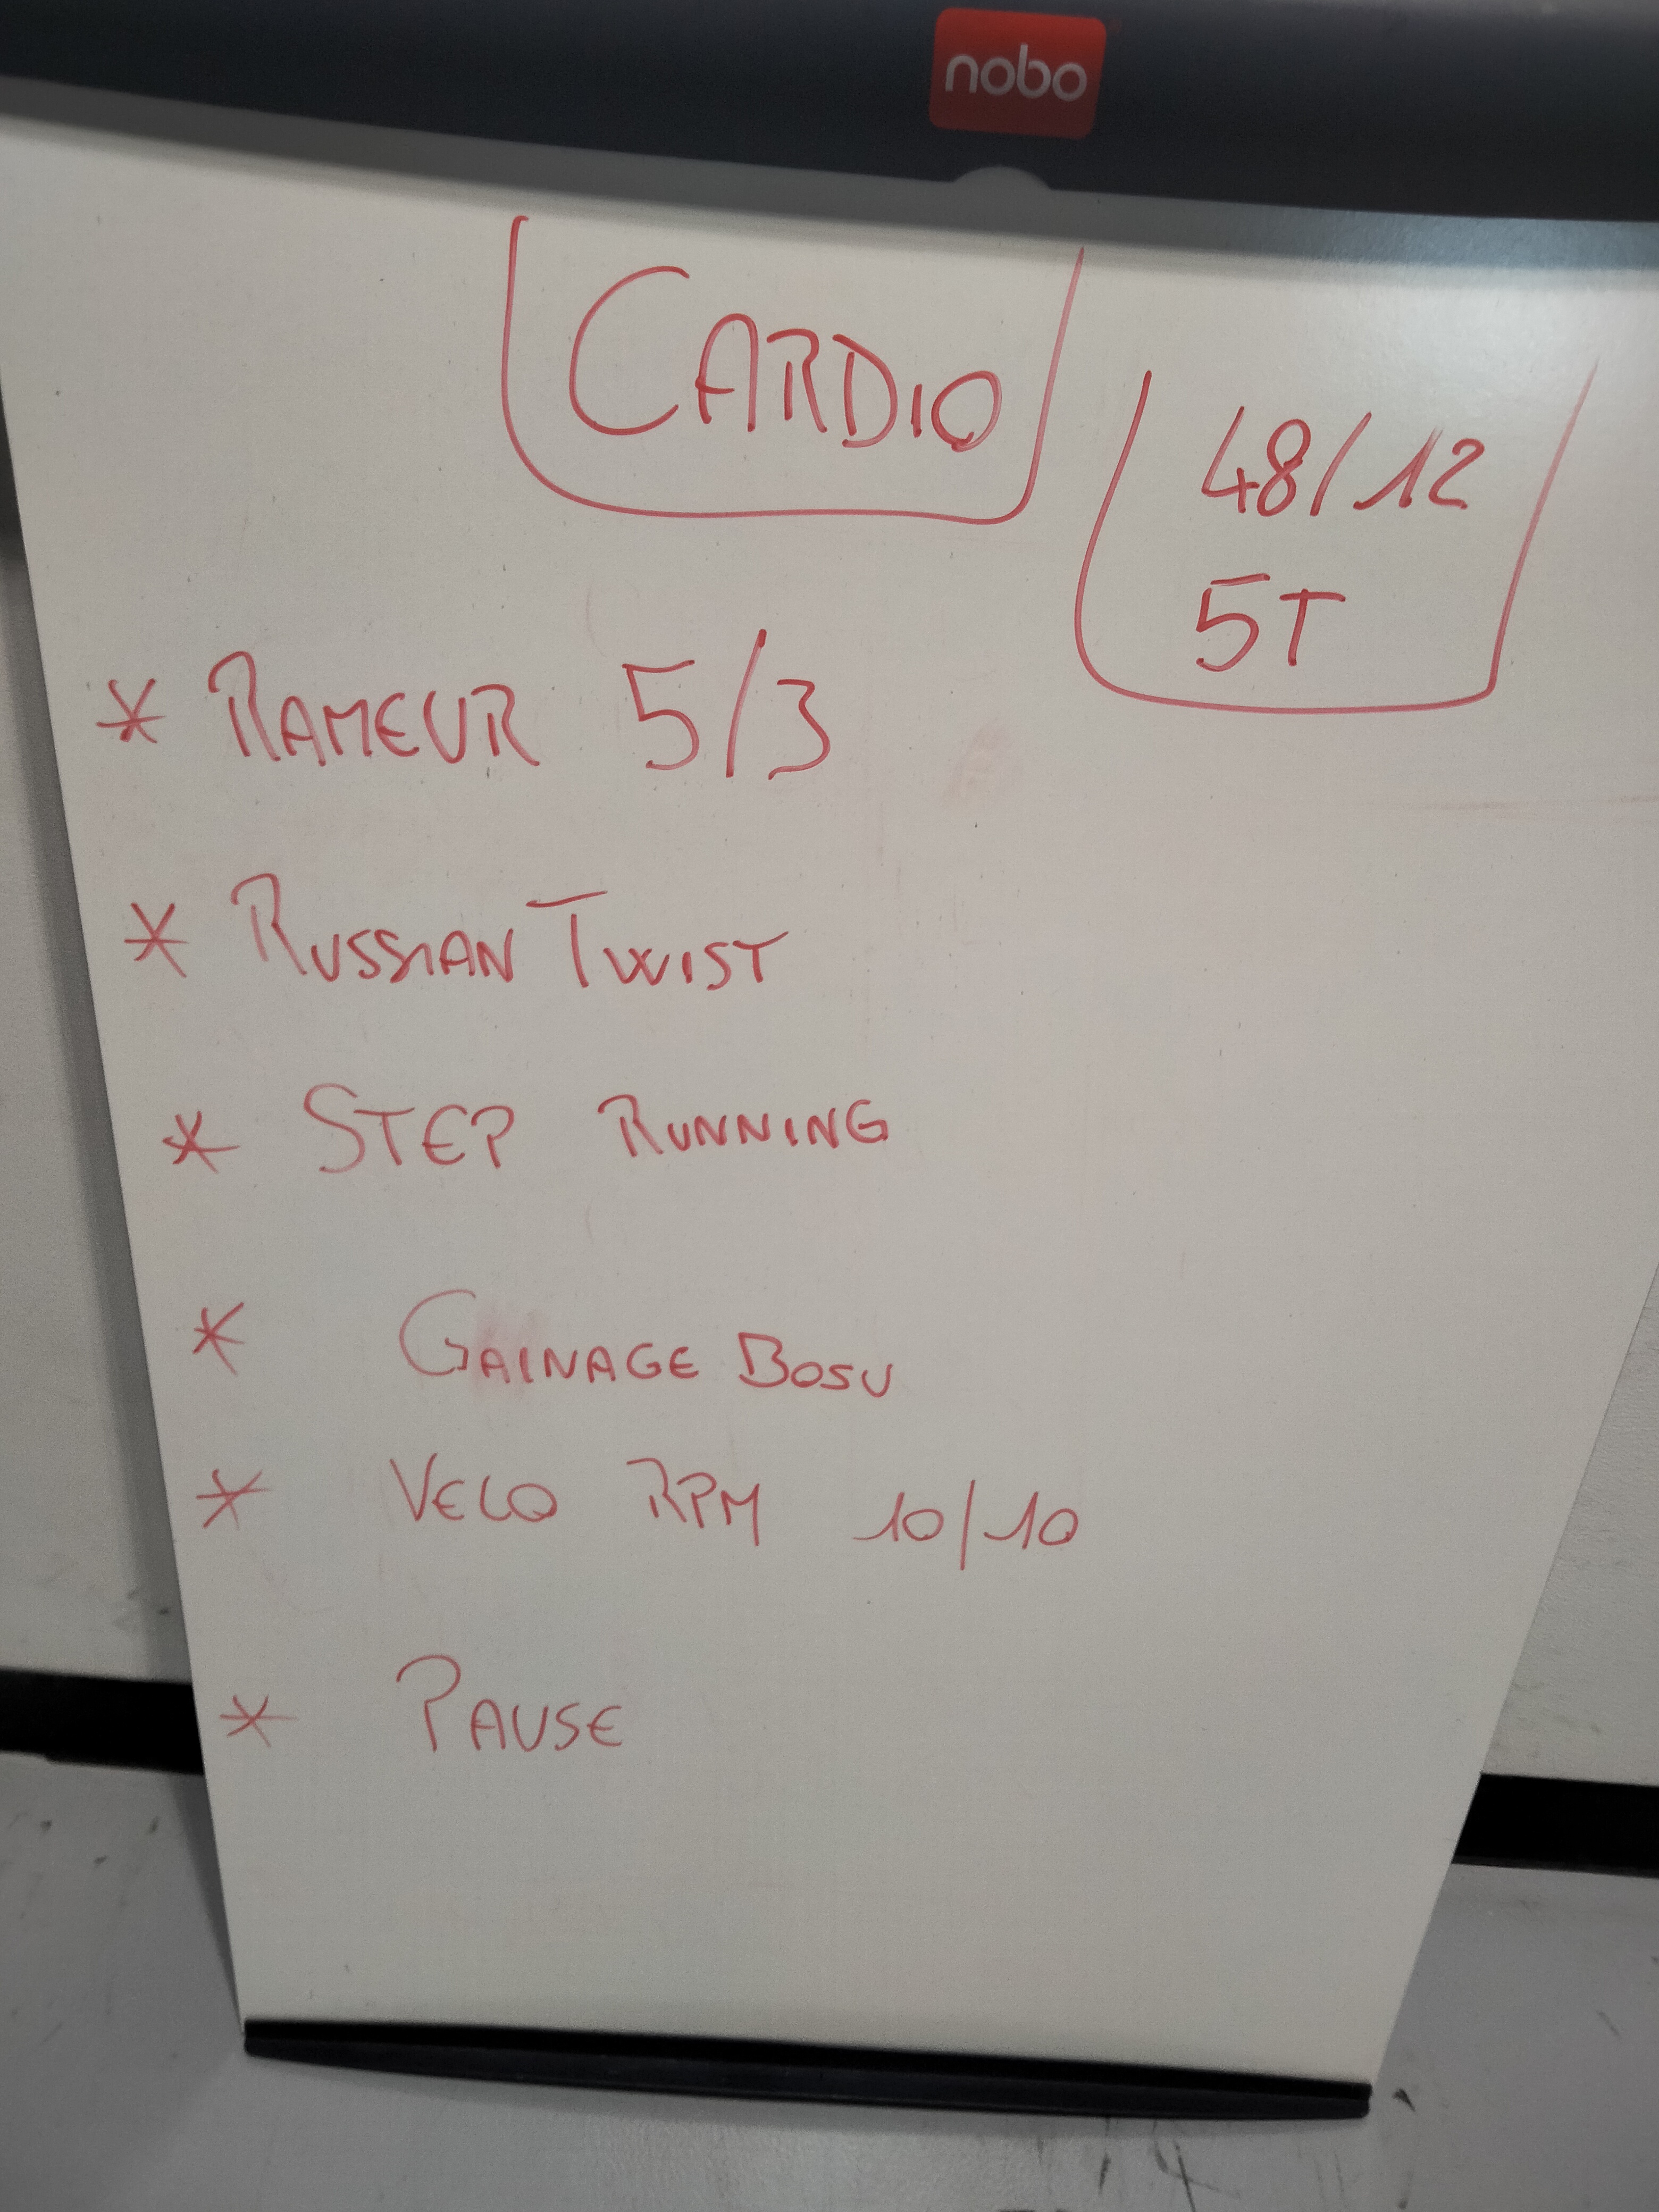 nobo
CARDIO
48/12
5T
* RAMEUR 5/3
* RUSSIAN TWIST
* STEP RUNNING
* GAINAGE BOSU
* VELO RPM 10/10
* PAUSE